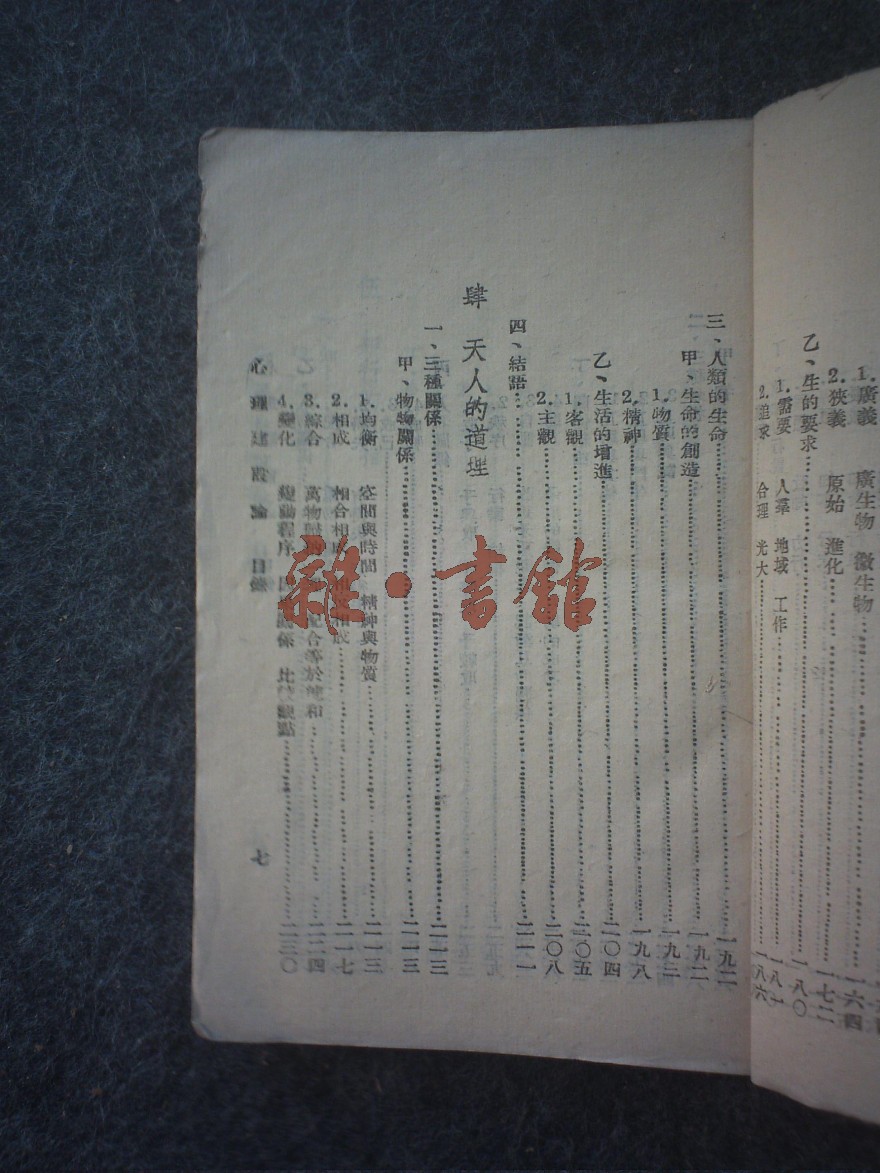 1.廣義 廣生物 微生物……一六四
2.狹義 原始 進化……一七二
乙、生的要求……一八〇
1.需要 人羣 地域 工作……一八一
2.追求 合理 光大……一八六
三、人類的生命……一九二
甲、生命的創造……一九二
1.物質……一九二
2.精神……一九八
乙、生活的增進……二〇四
1.客觀……二〇五
2.主觀……二〇八
四、結語……二一一
肆 天人的道理
一、三種關係……二一三
甲、物物關係……二一三
1.均衡 空間與時間 精神與物質……二一三
2.相成 相合相成 相成……二一七
3.綜合 萬物 配合等於 和……二二四
4.變化 變動程序 關係 比 觀點……二三〇
心理建設論 目錄
七
雜·書館